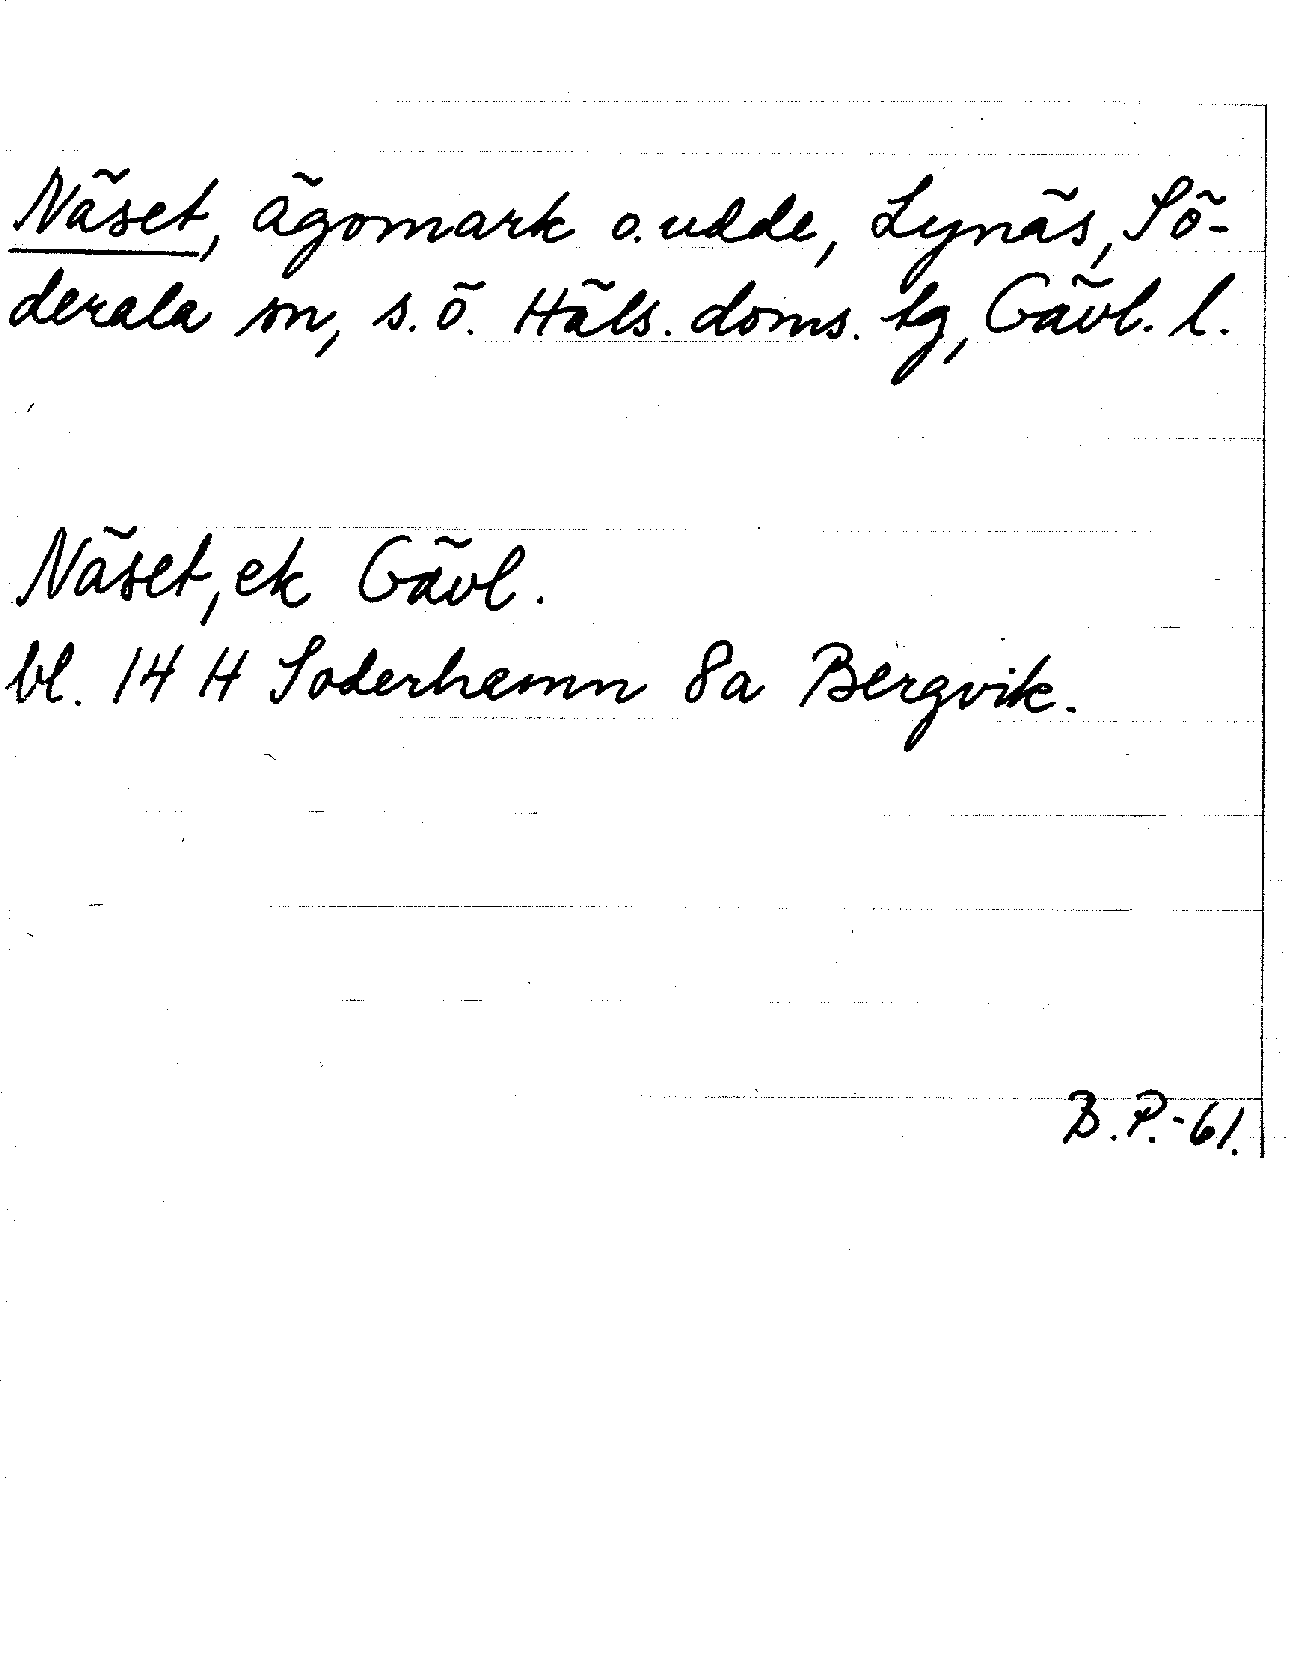 Näset, ägomark o. udde, Lynäs, Sö-
derala sn, s. ö. Häls. doms. tg, Gävl. l.
Näset, ek Gävl.
bl. 14 H Söderhamn 8a Bergvik.
B. P.-61.